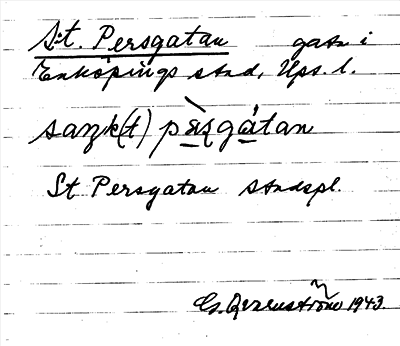 S:t. Persgatan gata i
Enköpings stad, Ups. l.
saŋk(t) pärsgatan
St Persgatan stadspl.
1943.